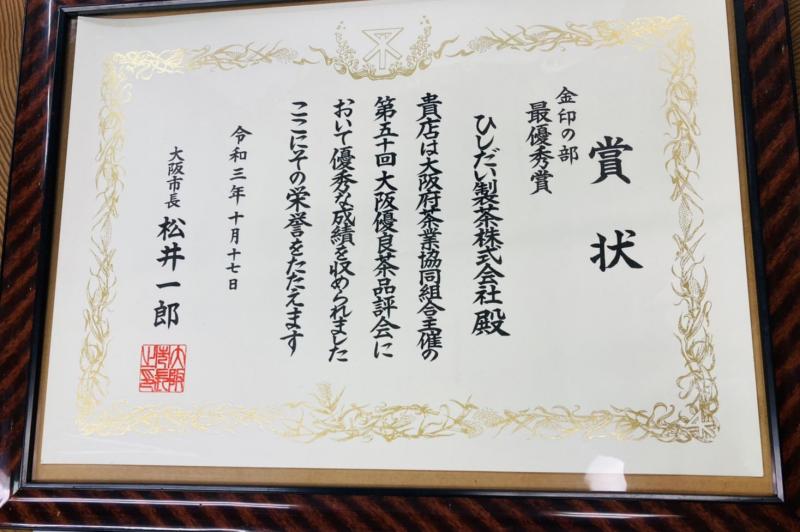 賞状
金印の部
最優秀賞
ひしだい製茶株式会社殿
貴店は大阪府茶業協同組合主催の
第五十回大阪優良茶品評会に
おいて優秀な成績を収められました
ここにその栄誉をたたえます
令和三年十月十七日
大阪市長 松井一郎
大阪
市長
之印